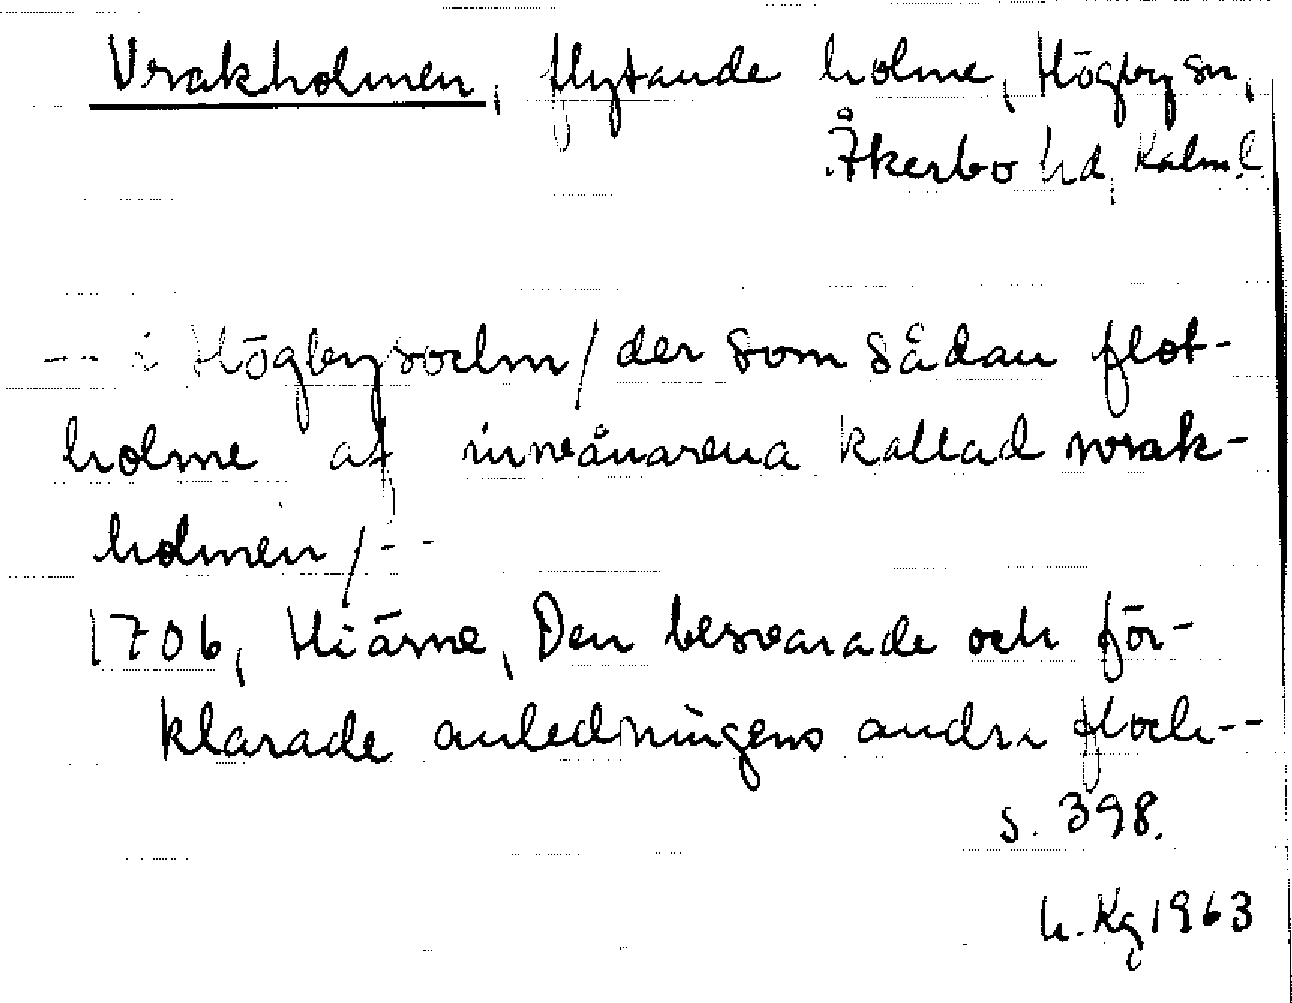 Vrakholmen, flytande holme, Högby sn,
Åkerbo hd, Kalm. l.
--- i Högbysockn / der som sådan flot-
holme af invånarena kallad wrak-
holmen / - -
1706, Hiärne, Den besvarade och för-
klarade anledningens andra flock - -
s. 398.
h. Kg 1963